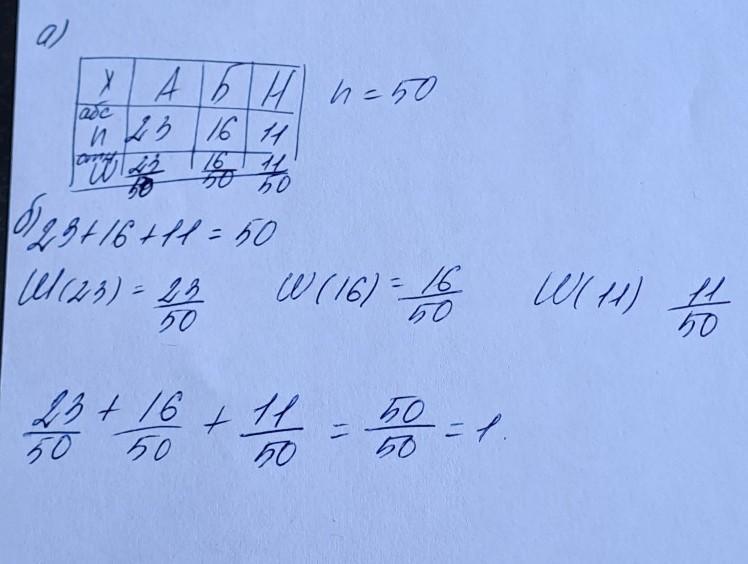 а)
X А Б Н n = 50
абс
n 23 16 11
W 23/50 16/50 11/50
б) 23+16+11 = 50
W(23) = 23/50 W(16) = 16/50 W(11) 11/50
23/50 + 16/50 + 11/50 = 50/50 = 1.